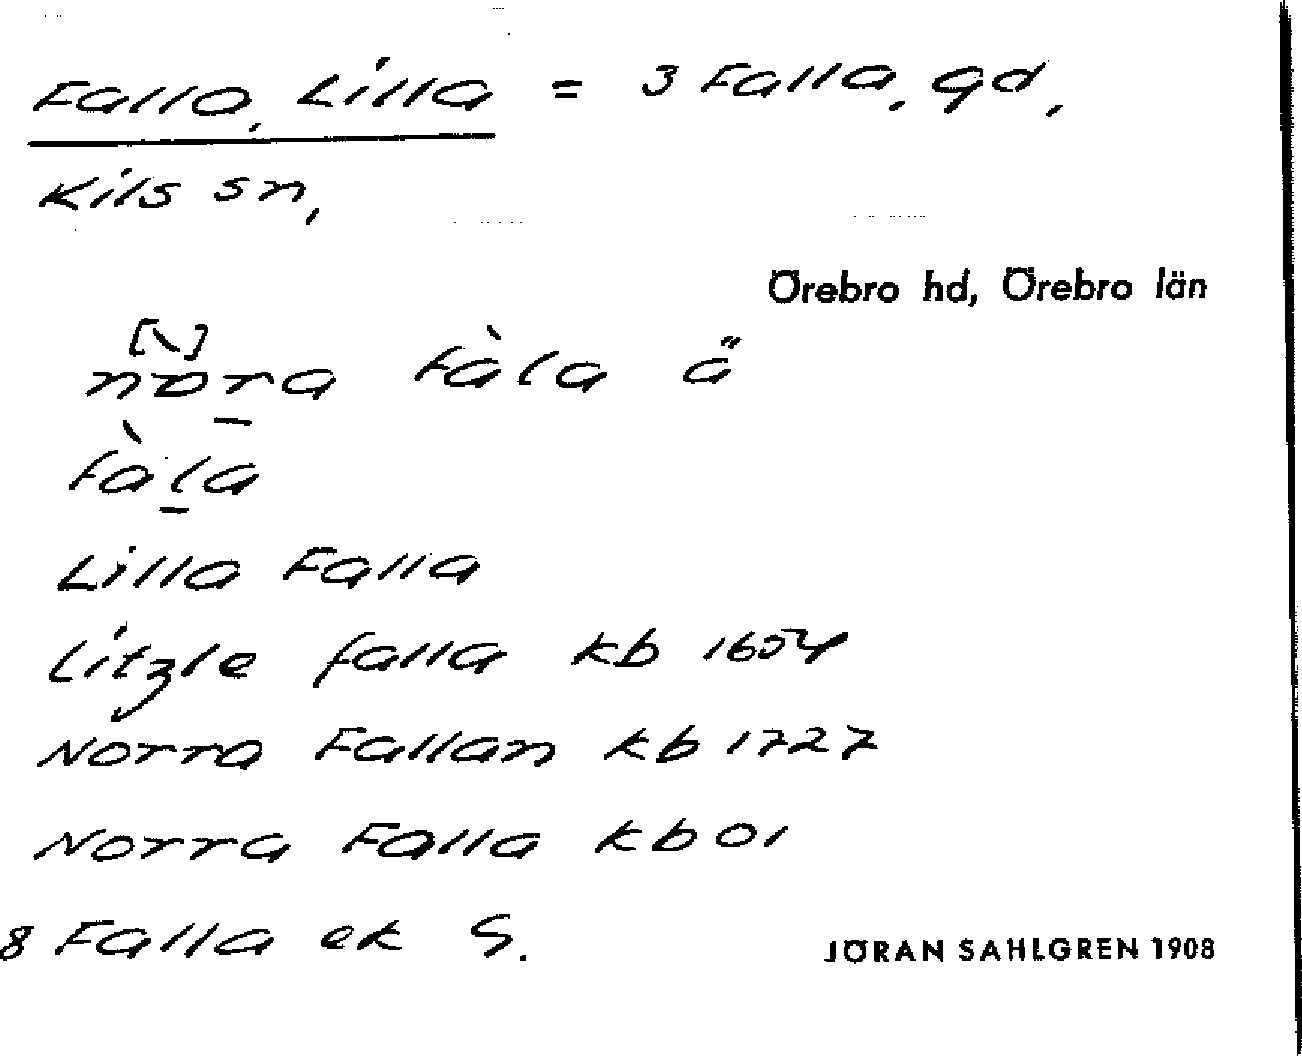 Falla, Lilla = 3 Falla, gd,
Kils sn,
Örebro hd, Örebro län
[ˋ]
nɷra fàla ä
fàla
Lilla Falla
Litzle falla kb 1654
Norra Fallan kb 1727
Norra Falla kb 01
8 Falla ek S.
JÖRAN SAHLGREN 1908